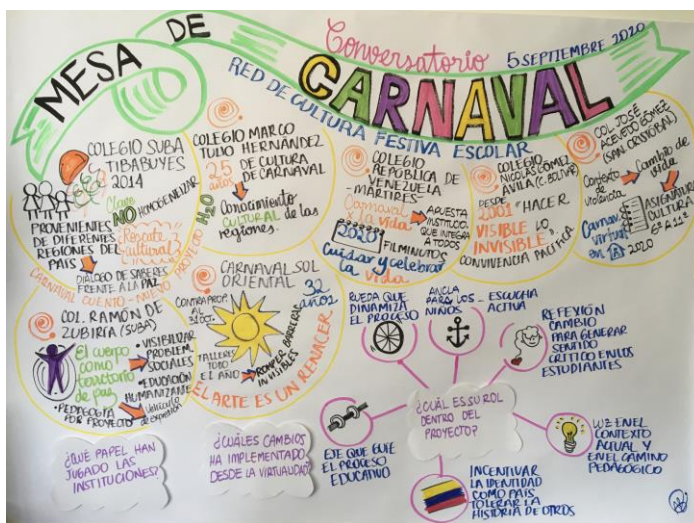 MESA DE
Conversatorio
5 SEPTIEMBRE 2020
CARNAVAL
RED DE CULTURA FESTIVA ESCOLAR
COLEGIO SUBA
TIBABUYES
2014
Clave
NO HOMOGENEIZAR
PROVENIENTES
DE DIFERENTES
REGIONES DEL
PAIS
¿Rescate
cultural?
DIÁLOGO DE SABERES
FRENTE A LA PAZ
CARNAVAL CUENTO - NUEVO PROYECTO H2O
COLEGIO MARCO
TULIO HERNÁNDEZ
25 DE CULTURA
años DE CARNAVAL
Conocimiento
CULTURAL de las
regiones.
COLEGIO
REPÚBLICA DE
VENEZUELA
-MÁRTIRES-
Carnaval
x la vida
APUESTA
INSTITUCIO.
QUE INTEGRA
A TODOS
2020
FILMINUTOS
Cuidar y celebrar
la vida
COLEGIO
NICOLAS GÓMEZ
AVILA (C. BOLIVAR)
DESDE
2001 "HACER
VISIBLE LO
INVISIBLE"
CONVIVENCIA PACÍFICA
COL. JOSÉ
ACEVEDO GÓMEZ
(SAN CRISTOBAL)
Contexto
de
violencia
Cambio de
vida
Carnaval
virtual
en
2020
ASIGNATURA
CULTURA
6° A 11°
COL. RAMÓN DE
ZUBIRÍA (SUBA)
El cuerpo
como
territorio
de paz
• VISIBILIZAR
PROBLEM.
SOCIALES
• EDUCACIÓN
HUMANIZANTE
• PEDAGOGÍA
POR PROYECTO
Vehículo
de expresión
CARNAVAL SOL
ORIENTAL
CONTRAPROP.
AL
31 OCT.
32
años
TALLERES
TODO
EL AÑO
ROMPER BARRERAS
INVISIBLES
EL ARTE ES UN RENACER
RUEDA QUE
DINAMIZA
EL PROCESO
ANCLA
PARA LOS
NIÑOS
ESCUCHA
ACTIVA
REFEXIÓN
CAMBIO
PARA GENERAR
SENTIDO
CRÍTICO EN LOS
ESTUDIANTES
¿CUÁL ES SU ROL
DENTRO DEL
PROYECTO?
LUZ EN EL
CONTEXTO
ACTUAL Y
EN EL CAMINO
PEDAGÓGICO
EJE QUE GUÍE
EL PROCESO
EDUCATIVO
INCENTIVAR
LA IDENTIDAD
COMO PAÍS
TOLERAR LA
HISTORIA DE OTROS
¿QUÉ PAPEL HAN
JUGADO LAS
INSTITUCIONES?
¿CUÁLES CAMBIOS
HA IMPLEMENTADO
DESDE LA VIRTUALIDAD?